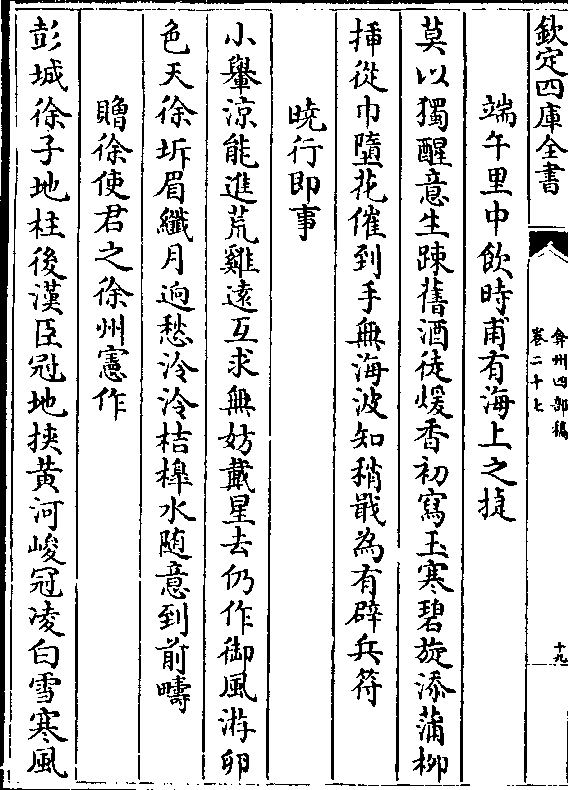 欽定四庫全書
弇州四部稿
卷二十七
十九
端午里中飲時甫有海上之㨗
莫以獨醒意生踈舊酒徒煖香初寫玉寒碧旋添蒲柳
揷從巾墮花催到手無海波知稍戢為有辟兵符
曉行即事
小轝涼能進荒雞遠互求無妨戴星去仍作御風游卵
色天徐坼眉纎月逈愁泠泠桔橰水随意到前疇
贈徐使君之徐州憲作
彭城徐子地柱後漢臣冠地挾黃河峻冠凌白雪寒風